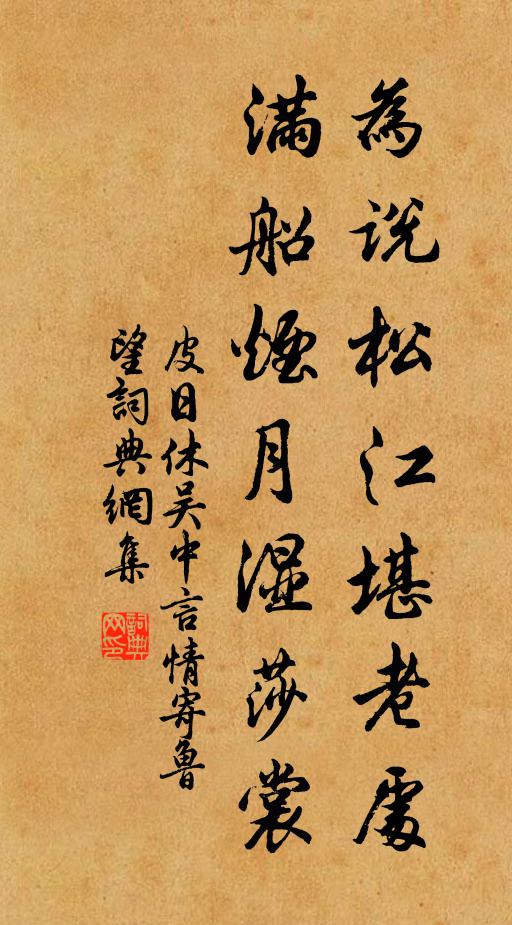 為說松江堪老處
滿船煙月濕莎裳
皮日休吴中言情寄魯
望詞典網集
詞典網印